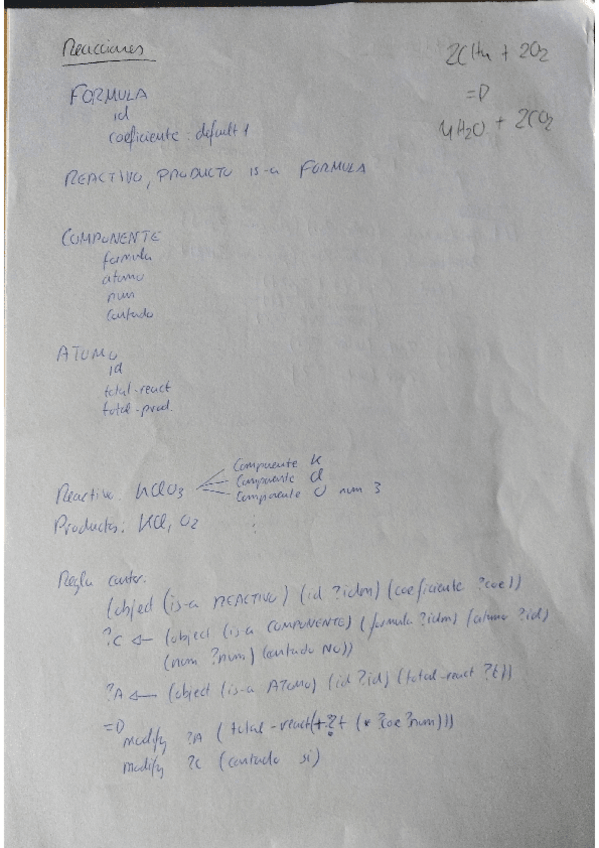 Reacciones
2CH4 + 2O2
=D
4H2O + 2CO2
FORMULA
id
coeficiente default 1
REACTIVO, PRODUCTO is-a FORMULA
COMPONENTE
formula
atomo
num
contado
ATOMO
id
total-react
total-prod.
Reactivo: KClO3
Componente K
Componente Cl
Componente O num 3
Productos: KCl, O2
:
Regla contar:
(object (is-a REACTIVO) (id ?idm) (coeficiente ?coe))
?C <- (object (is-a COMPONENTE) (formula ?idm) (atomo ?id)
(num ?num) (contado NO))
?A <- (object (is-a ATOMO) (id ?id) (total-react ?t))
=D
modify ?A (total-react (+ ?t (* ?coe ?num)))
modify ?C (contado si)